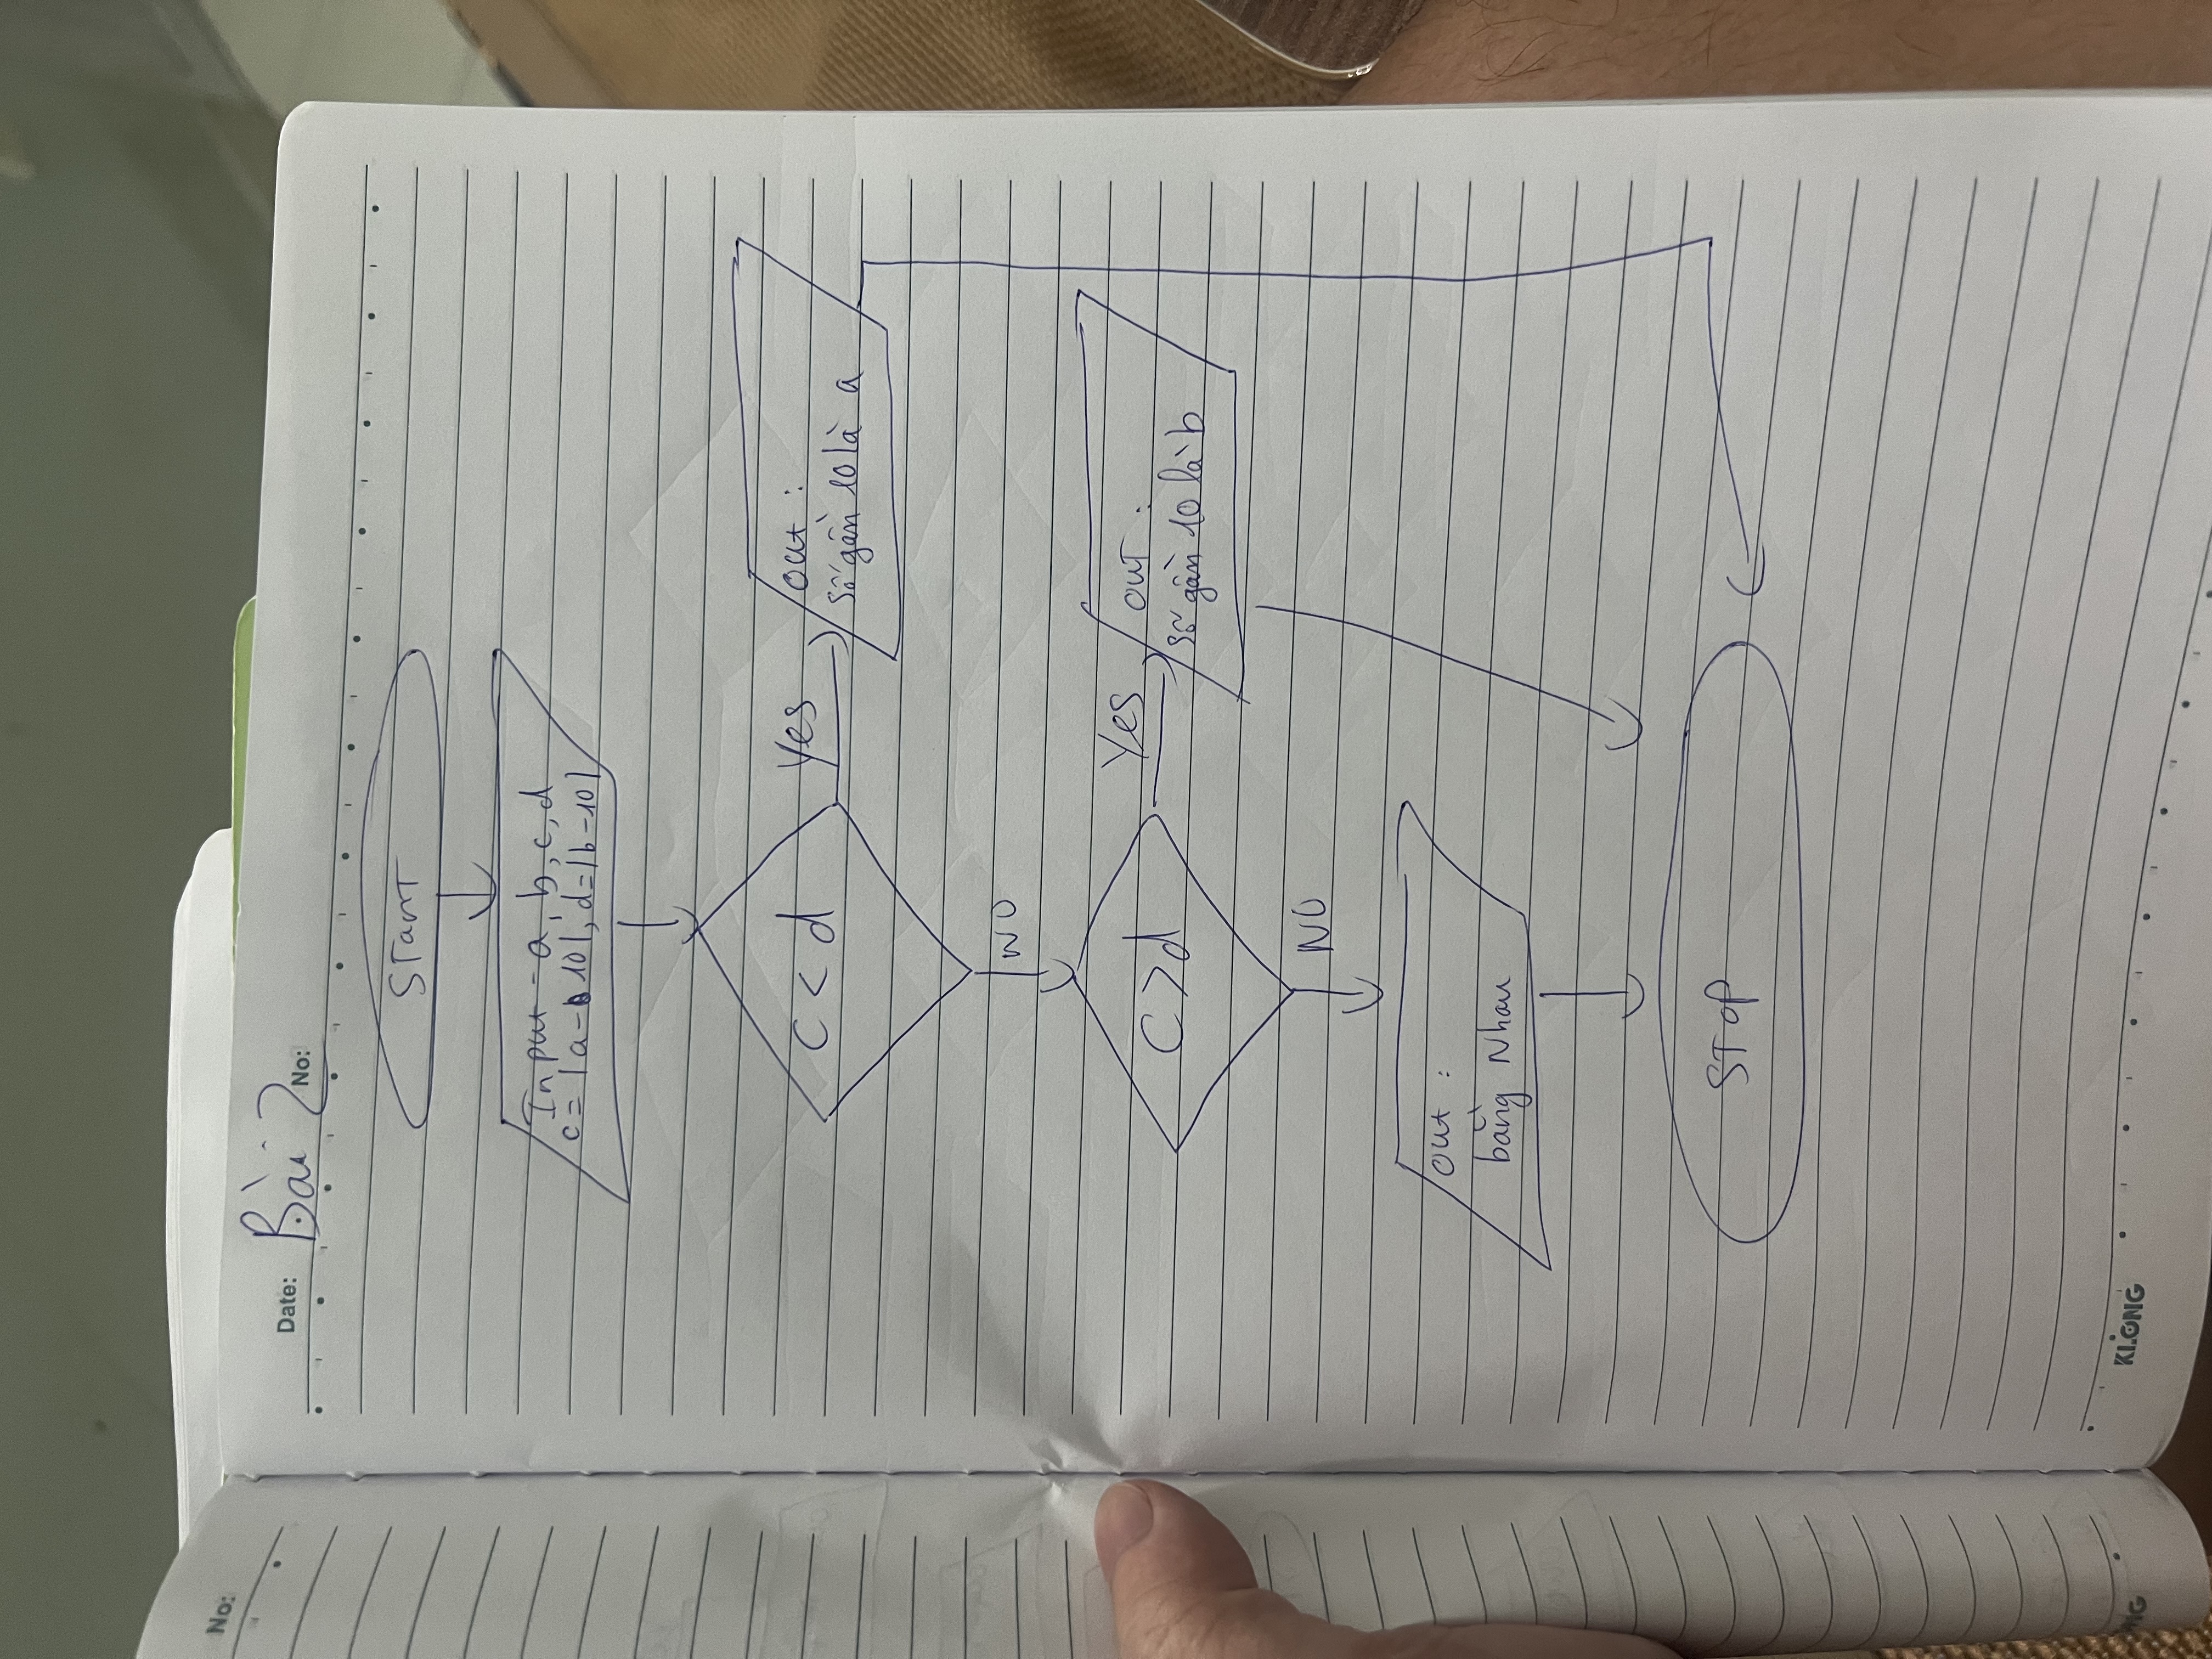 No:
Date: Bài 2 No:
START
Input - a, b, c, d
c = |a - 10|, d = |b - 10|
c < d
Yes
out :
số gần 10 là a
NO
C > d
Yes
OUT :
số gần 10 là b
NO
out :
bằng Nhau
STOP
KLONG
NG